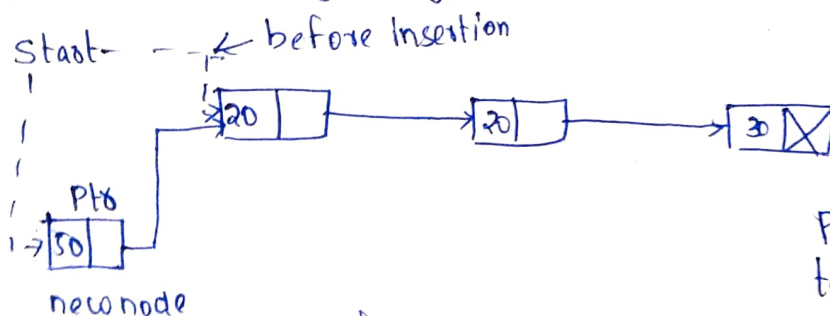 Start
before Insertion
20
20
30
Ptr
50
newnode